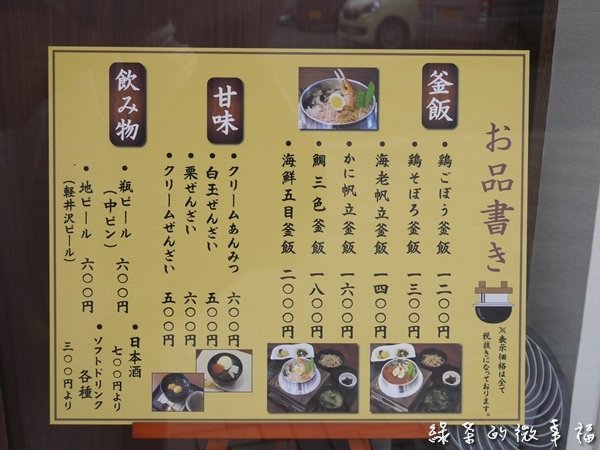 お品書き
※表示価格は全て
税抜きになっております。
釜飯
・鶏ごぼう釜飯 一二〇〇円
・鶏そぼろ釜飯 一三〇〇円
・海老帆立釜飯 一四〇〇円
・かに帆立釜飯 一六〇〇円
・鯛三色釜飯 一八〇〇円
・海鮮五目釜飯 二〇〇〇円
甘味
・クリームあんみつ 六〇〇円
・白玉ぜんざい 五〇〇円
・栗ぜんざい
・クリームぜんざい 五〇〇円
飲み物
・瓶ビール 六〇〇円
（中ビン）
・地ビール 六〇〇円
（軽井沢ビール）
・日本酒
七〇〇円より
・ソフトドリンク
各種
三〇〇円より
綠茶的微幸福